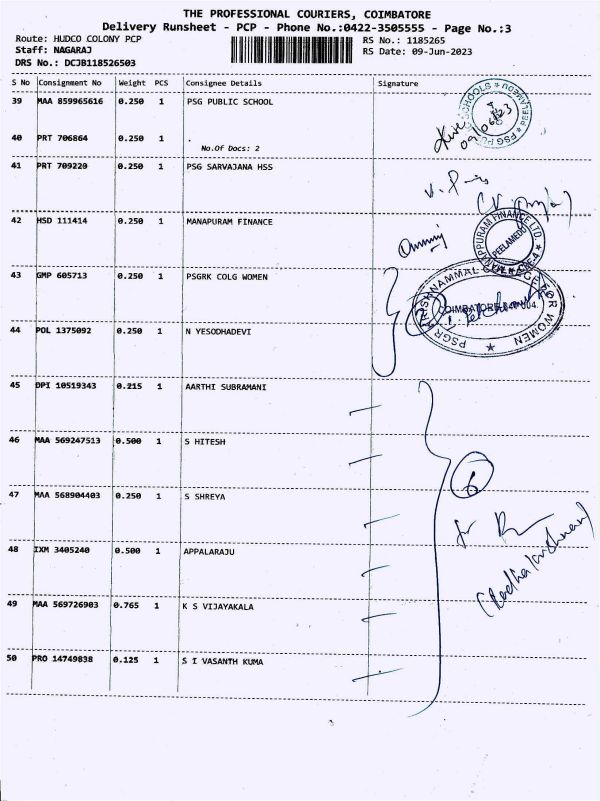 THE PROFESSIONAL COURIERS, COIMBATORE
Delivery Runsheet - PCP - Phone No.:0422-3505555 - Page No.:3
Route: HUDCO COLONY PCP RS No.: 1185265
Staff: NAGARAJ RS Date: 09-Jun-2023
DRS No.: DCJB118526503
S No Consignment No Weight PCS Consignee Details Signature
39 MAA 859965616 0.250 1 PSG PUBLIC SCHOOL
09/06/23
40 PRT 706864 0.250 1 .
No.Of Docs: 2
41 PRT 709220 0.250 1 PSG SARVAJANA HSS
42 HSD 111414 0.250 1 MANAPURAM FINANCE
PEELAMEDU
43 GMP 605713 0.250 1 PSGRK COLG WOMEN
PSGR KRISHNAMMAL COLLEGE FOR WOMEN
COIMBATORE-641 004.
44 POL 1375092 0.250 1 N YESODHADEVI
45 DPI 10519343 0.215 1 AARTHI SUBRAMANI
46 MAA 569247513 0.500 1 S HITESH
6
47 MAA 568904403 0.250 1 S SHREYA
(Radhakrishnan)
48 IXM 3405240 0.500 1 APPALARAJU
49 MAA 569726903 0.765 1 K S VIJAYAKALA
50 PRO 14749838 0.125 1 S I VASANTH KUMA